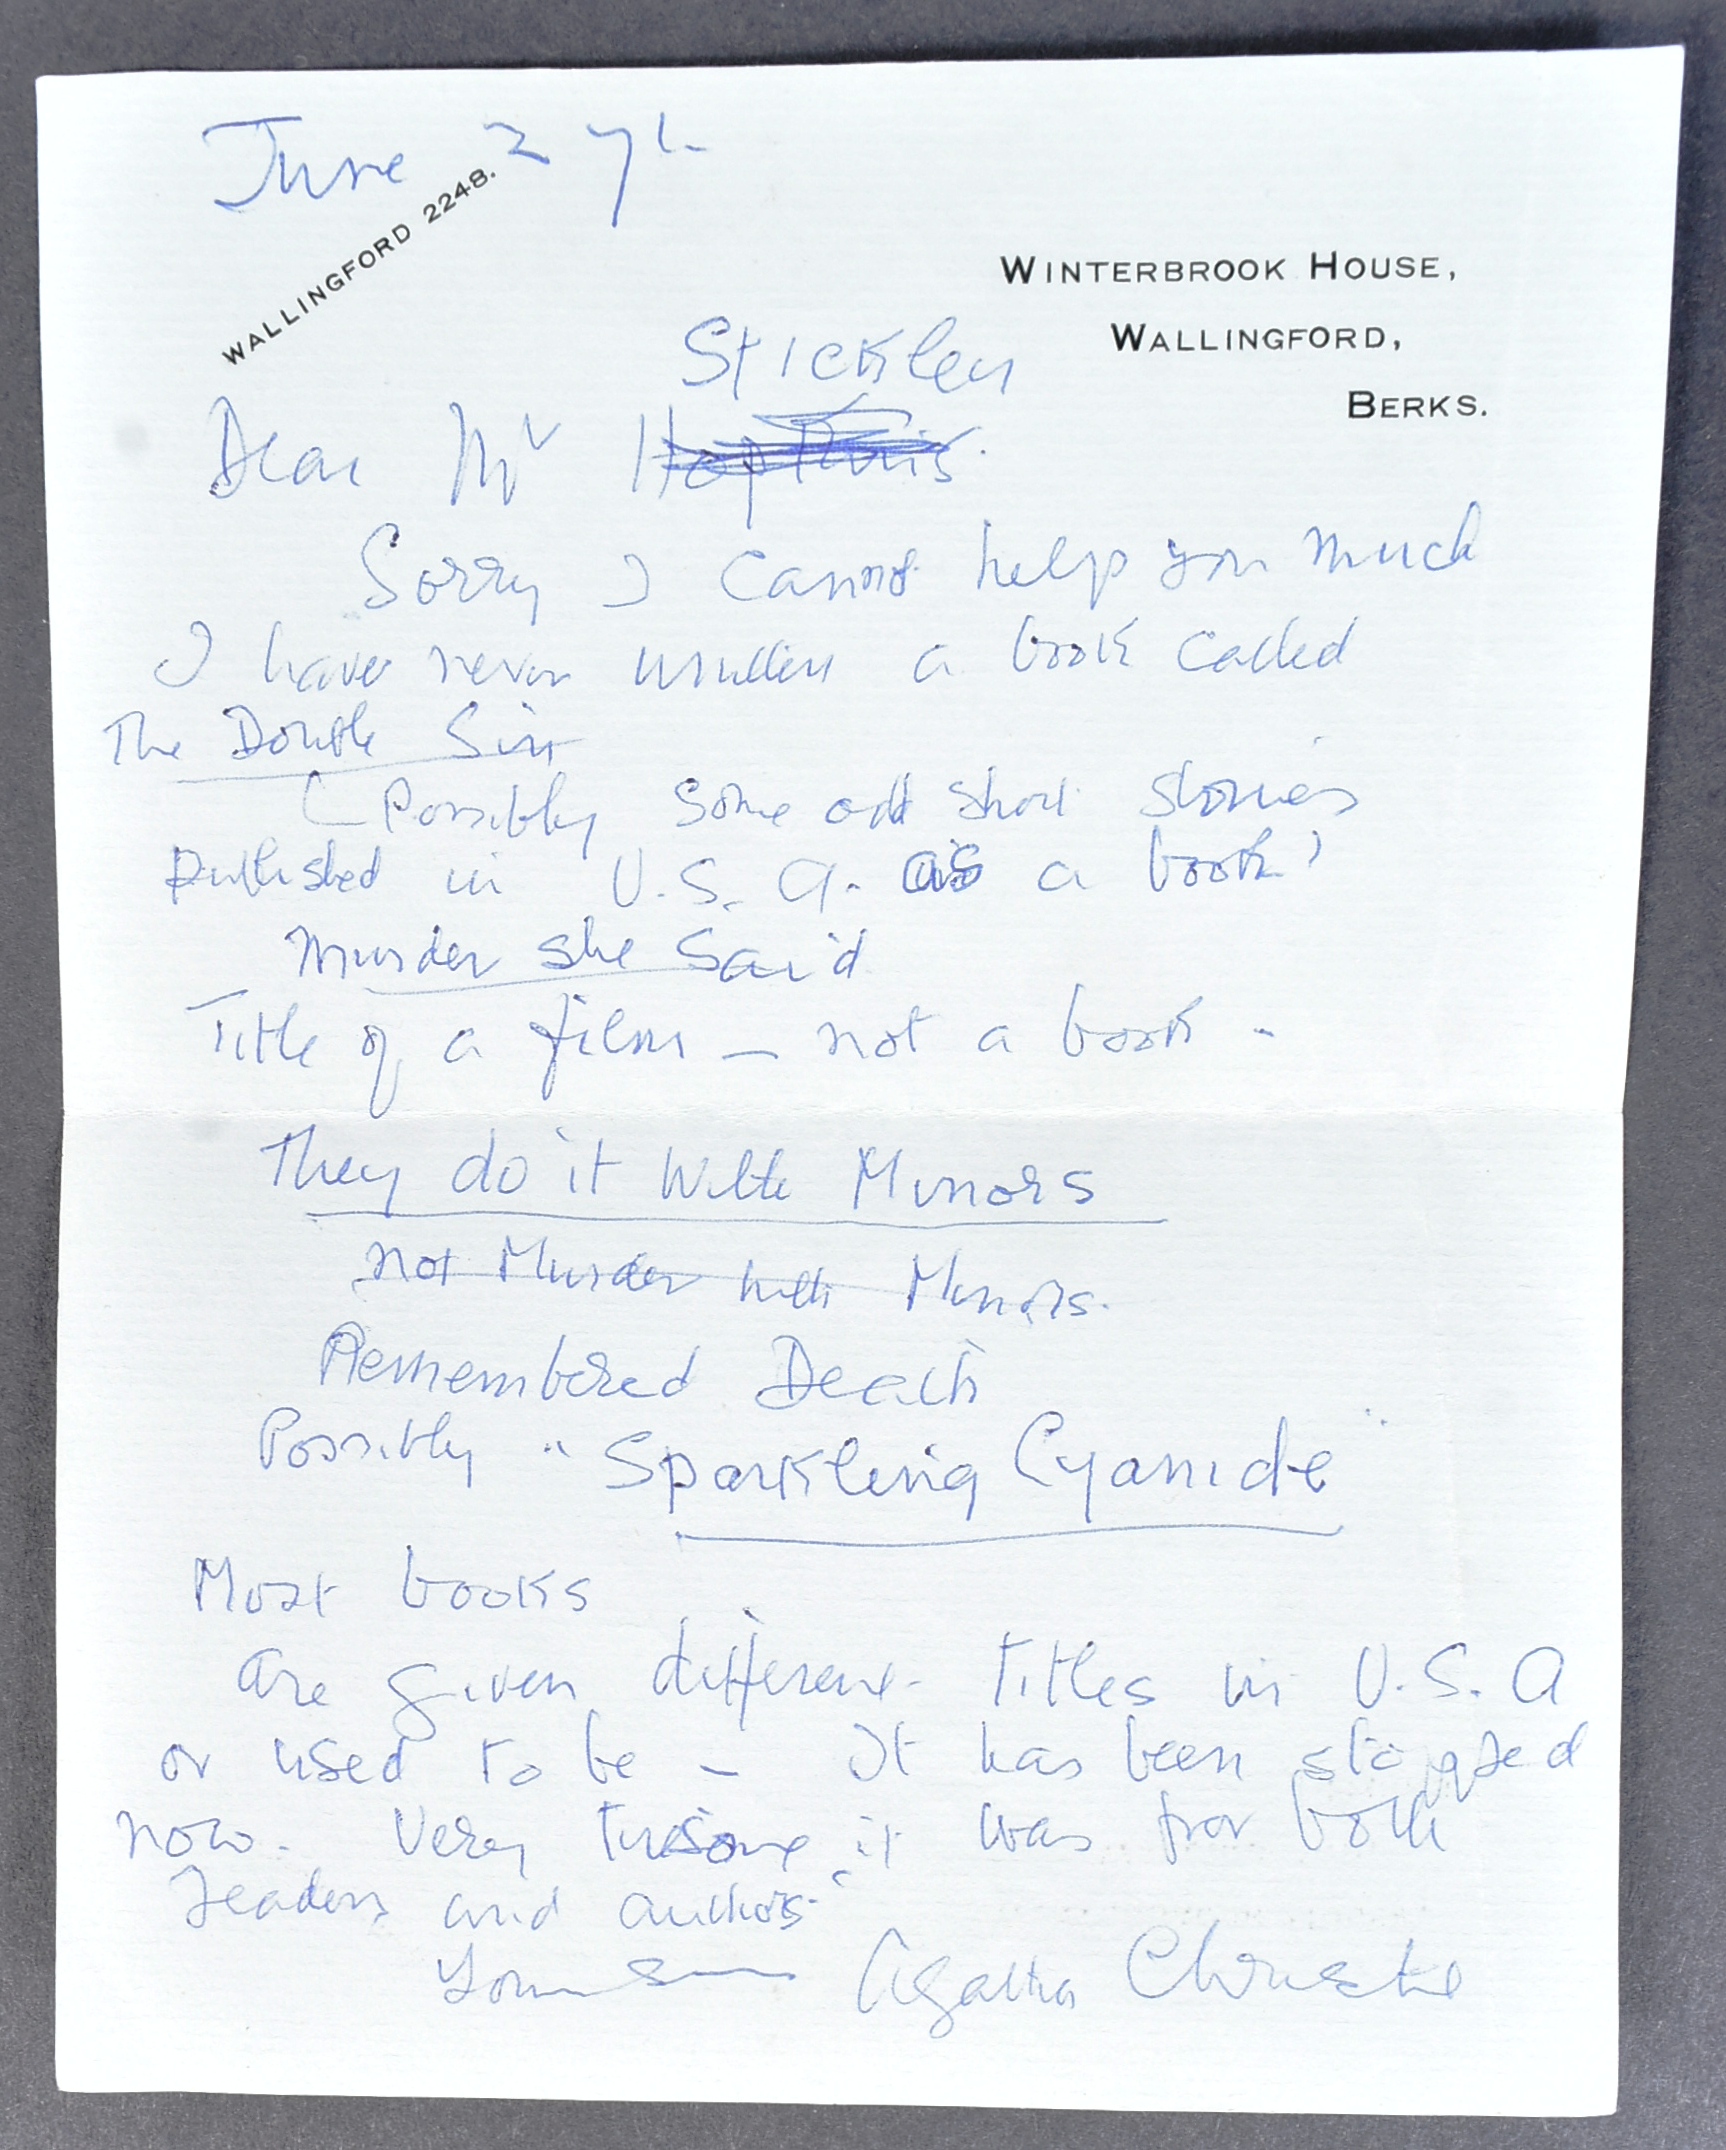 June 27th
WALLINGFORD 2248.
WINTERBROOK HOUSE,
WALLINGFORD,
BERKS.
Stickley
Dear Mr Hopkins.
Sorry I cannot help you much
I have never written a book called
The Double Sin
(Possibly some odd short stories
published in U.S.A. as a book)
Murder she Said
Title of a film — not a book -
They do it With Mirrors
not Murder with Mirrors.
Remembered Death
Possibly "Sparkling Cyanide"
Most books
are given different titles in U.S.A
or used to be - It has been stopped
now. Very tiresome it was for both
readers and authors.
Yours Agatha Christie